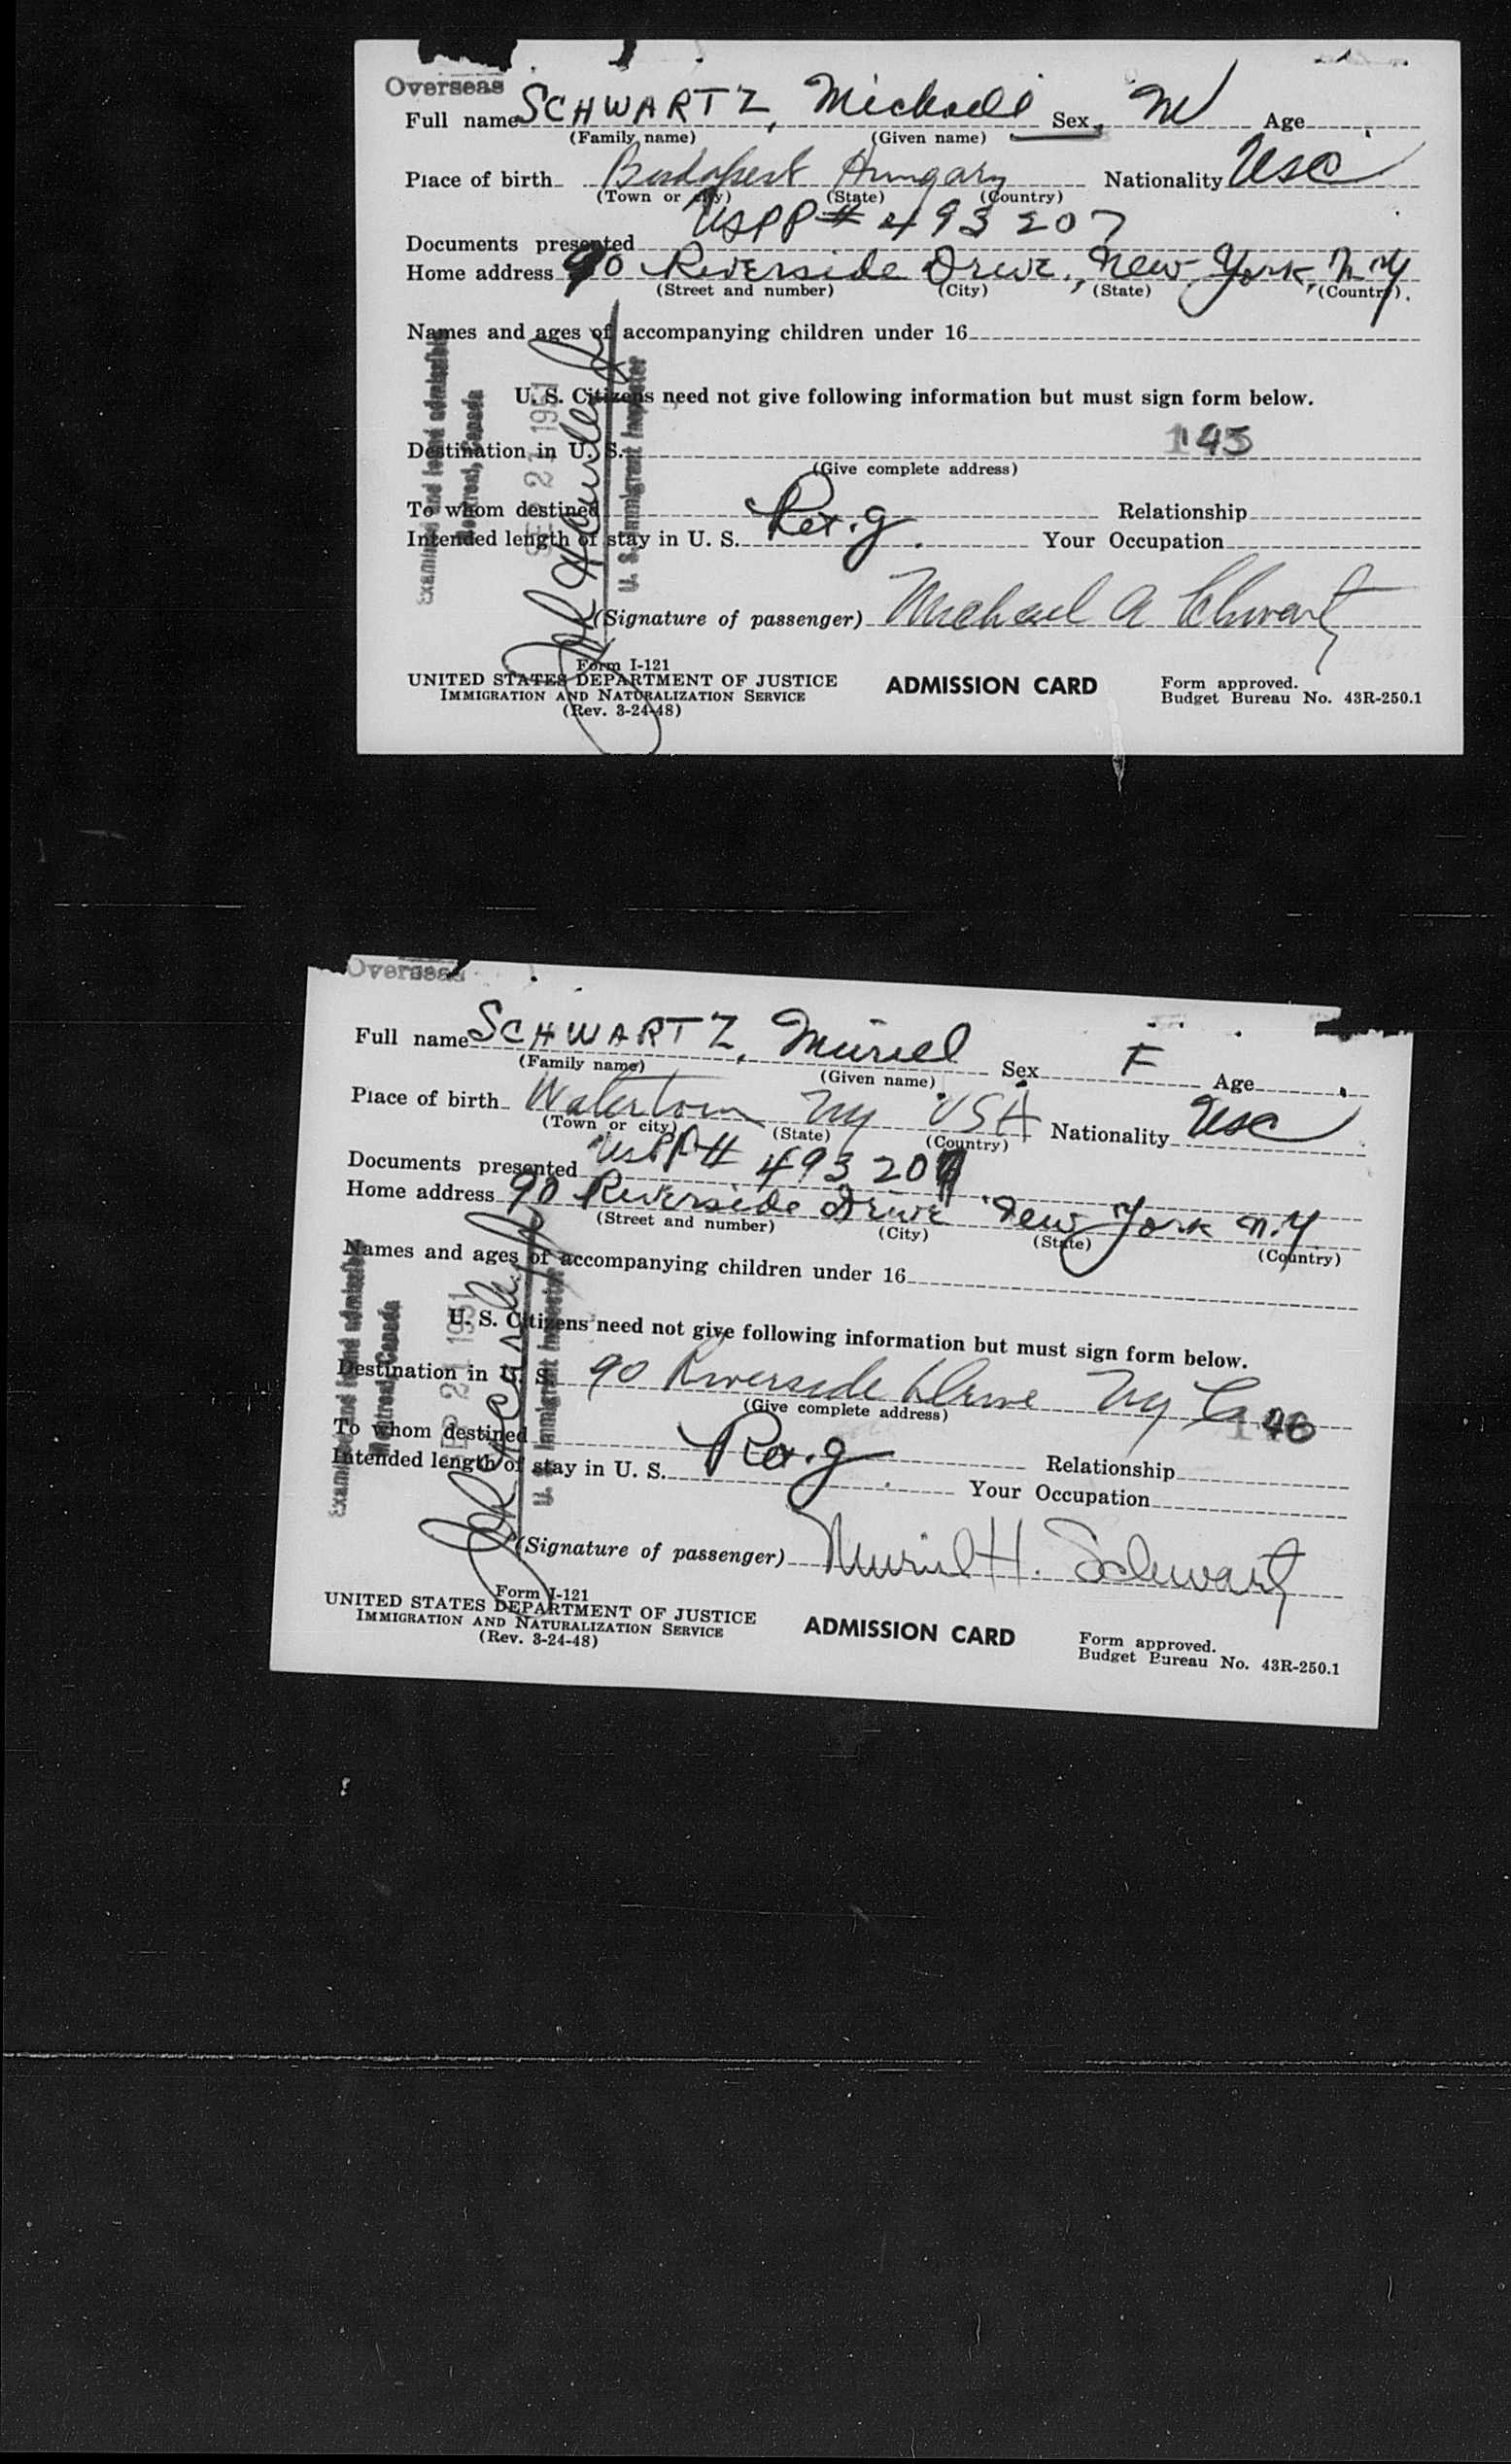 Overseas
Full name SCHWARTZ, Michael Sex M Age
(Family name) (Given name)
Place of birth Budapest Hungary Nationality USC
(Town or city) (State) (Country)
USPP# 493207
Documents presented
Home address 90 Riverside Drive, New York, N.Y.
(Street and number) (City) (State) (Country)
Names and ages of accompanying children under 16
U. S. Citizens need not give following information but must sign form below.
Destination in U. S. 145
(Give complete address)
To whom destined Relationship
Intended length of stay in U. S. Your Occupation
(Signature of passenger) Michael A Schwartz
Form I-121
UNITED STATES DEPARTMENT OF JUSTICE
IMMIGRATION AND NATURALIZATION SERVICE
(Rev. 3-24-48)
ADMISSION CARD
Form approved.
Budget Bureau No. 43R-250.1
Examined and found admissible
Montreal, Canada
SEP 21 1951
U. S. Immigrant Inspector
Overseas
Full name SCHWARTZ, Muriel Sex F Age
(Family name) (Given name)
Place of birth Watertown NY USA Nationality USC
(Town or city) (State) (Country)
Documents presented USPP# 493207
Home address 90 Riverside Drive New York N.Y.
(Street and number) (City) (State) (Country)
Names and ages of accompanying children under 16
U. S. Citizens need not give following information but must sign form below.
Destination in U. S. 90 Riverside Drive NY C 146
(Give complete address)
To whom destined Relationship
Intended length of stay in U. S. Your Occupation
(Signature of passenger) Muriel H. Schwartz
Form I-121
UNITED STATES DEPARTMENT OF JUSTICE
IMMIGRATION AND NATURALIZATION SERVICE
(Rev. 3-24-48)
ADMISSION CARD
Form approved.
Budget Bureau No. 43R-250.1
Examined and found admissible
Montreal, Canada
SEP 21 1951
U. S. Immigrant Inspector